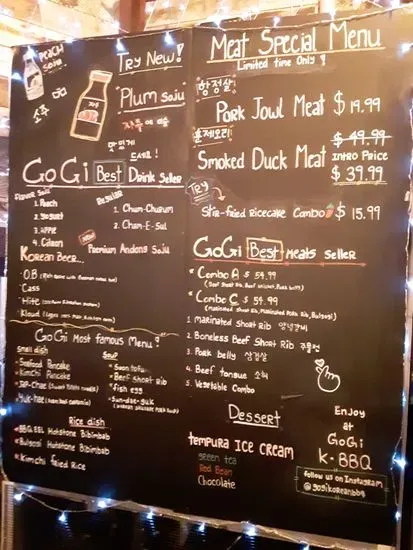 PEACH
Soju
소주
Try New!
Plum Soju
자두에이슬
맛있게
드세요!
GoGi Best Drink Seller
Flavor Soju
1. Peach
2. Yogurt
3. Apple
4. Citron
Regular
1. Chum-Churum
2. Cham-E-Sul
Premium Andong Soju
Korean Beer...
O.B
Cass
Hite
Kloud
GoGi Most Famous Menu!
Small dish
Seafood Pancake
Kimchi Pancake
Jap-Chae
Yuk-hae
Soup
Soon tofu
Beef Short Rib
fish egg
Sun-dae-guk
Rice dish
BBQ BEL Hotstone Bibimbab
Bulgogi Hotstone Bibimbab
Kimchi Fried Rice
Meat Special Menu
Limited time Only!
항정살!
Pork Jowl Meat $19.99
훈제오리!
$49.99
Smoked Duck Meat Intro Price
$39.99
Try
Stir-fried Ricecake Combo $15.99
GoGi Best Meats Seller
Combo A $ 54.99
Combo C $ 59.99
(Marinated Short Rib, Marinated Pork Rib, Bulgogi)
1. Marinated Short Rib 양념갈비
2. Boneless Beef Short Rib 주물럭
3. Pork belly 삼겹살
4. Beef tongue 소혀
5. Vegetable Combo
Dessert
tempura ICE CREAM
green tea
Red Bean
Chocolate
Enjoy
at
GoGi
K-BBQ
follow us on Instagram
@gogikoreanbbq